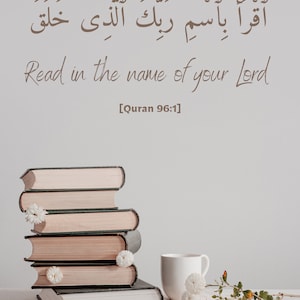 ٱقْرَأْ بِٱسْمِ رَبِّكَ ٱلَّذِى خَلَقَ
Read in the name of your Lord
[Quran 96:1]